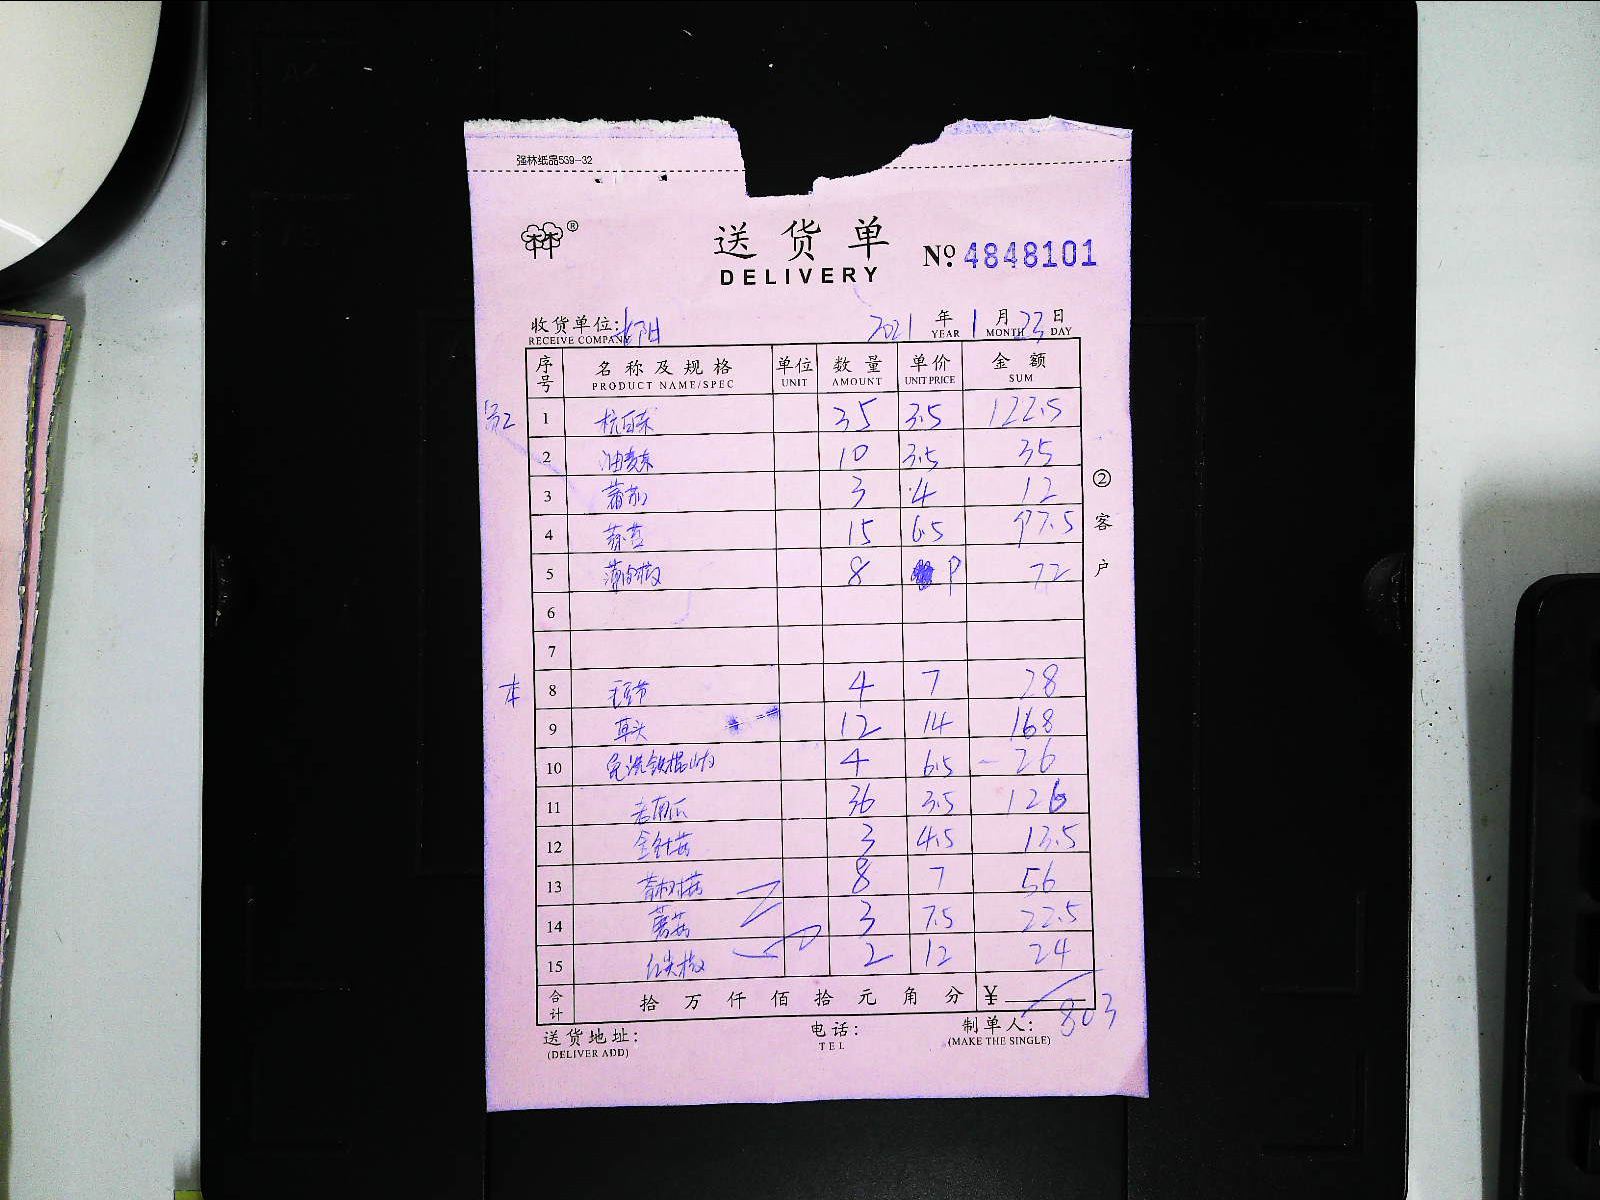 强林纸品539-32
®
送货单
DELIVERY
№ 4848101
收货单位: 2021 年 1 月 23 日
RECEIVE COMPANY YEAR MONTH DAY
序号 名称及规格 单位 数量 单价 金额
PRODUCT NAME/SPEC UNIT AMOUNT UNIT PRICE SUM
1 杭白菜 35 3.5 122.5
2 油麦菜 10 3.5 35
3 3 4 12
4 蒜苔 15 6.5 97.5
5 薄皮椒 8 9 72
6
7
本 8 毛豆节 4 7 28
9 草头 12 14 168
10 免洗铁棍山药 4 6.5 26
11 老南瓜 36 3.5 126
12 金针菇 3 4.5 13.5
13 8 7 56
14 蘑菇 3 7.5 22.5
15 红尖椒 2 12 24
合计 拾万仟佰拾元角分 ¥ 803
② 客户
送货地址: 电话: 制单人:
(DELIVER ADD) TEL (MAKE THE SINGLE)